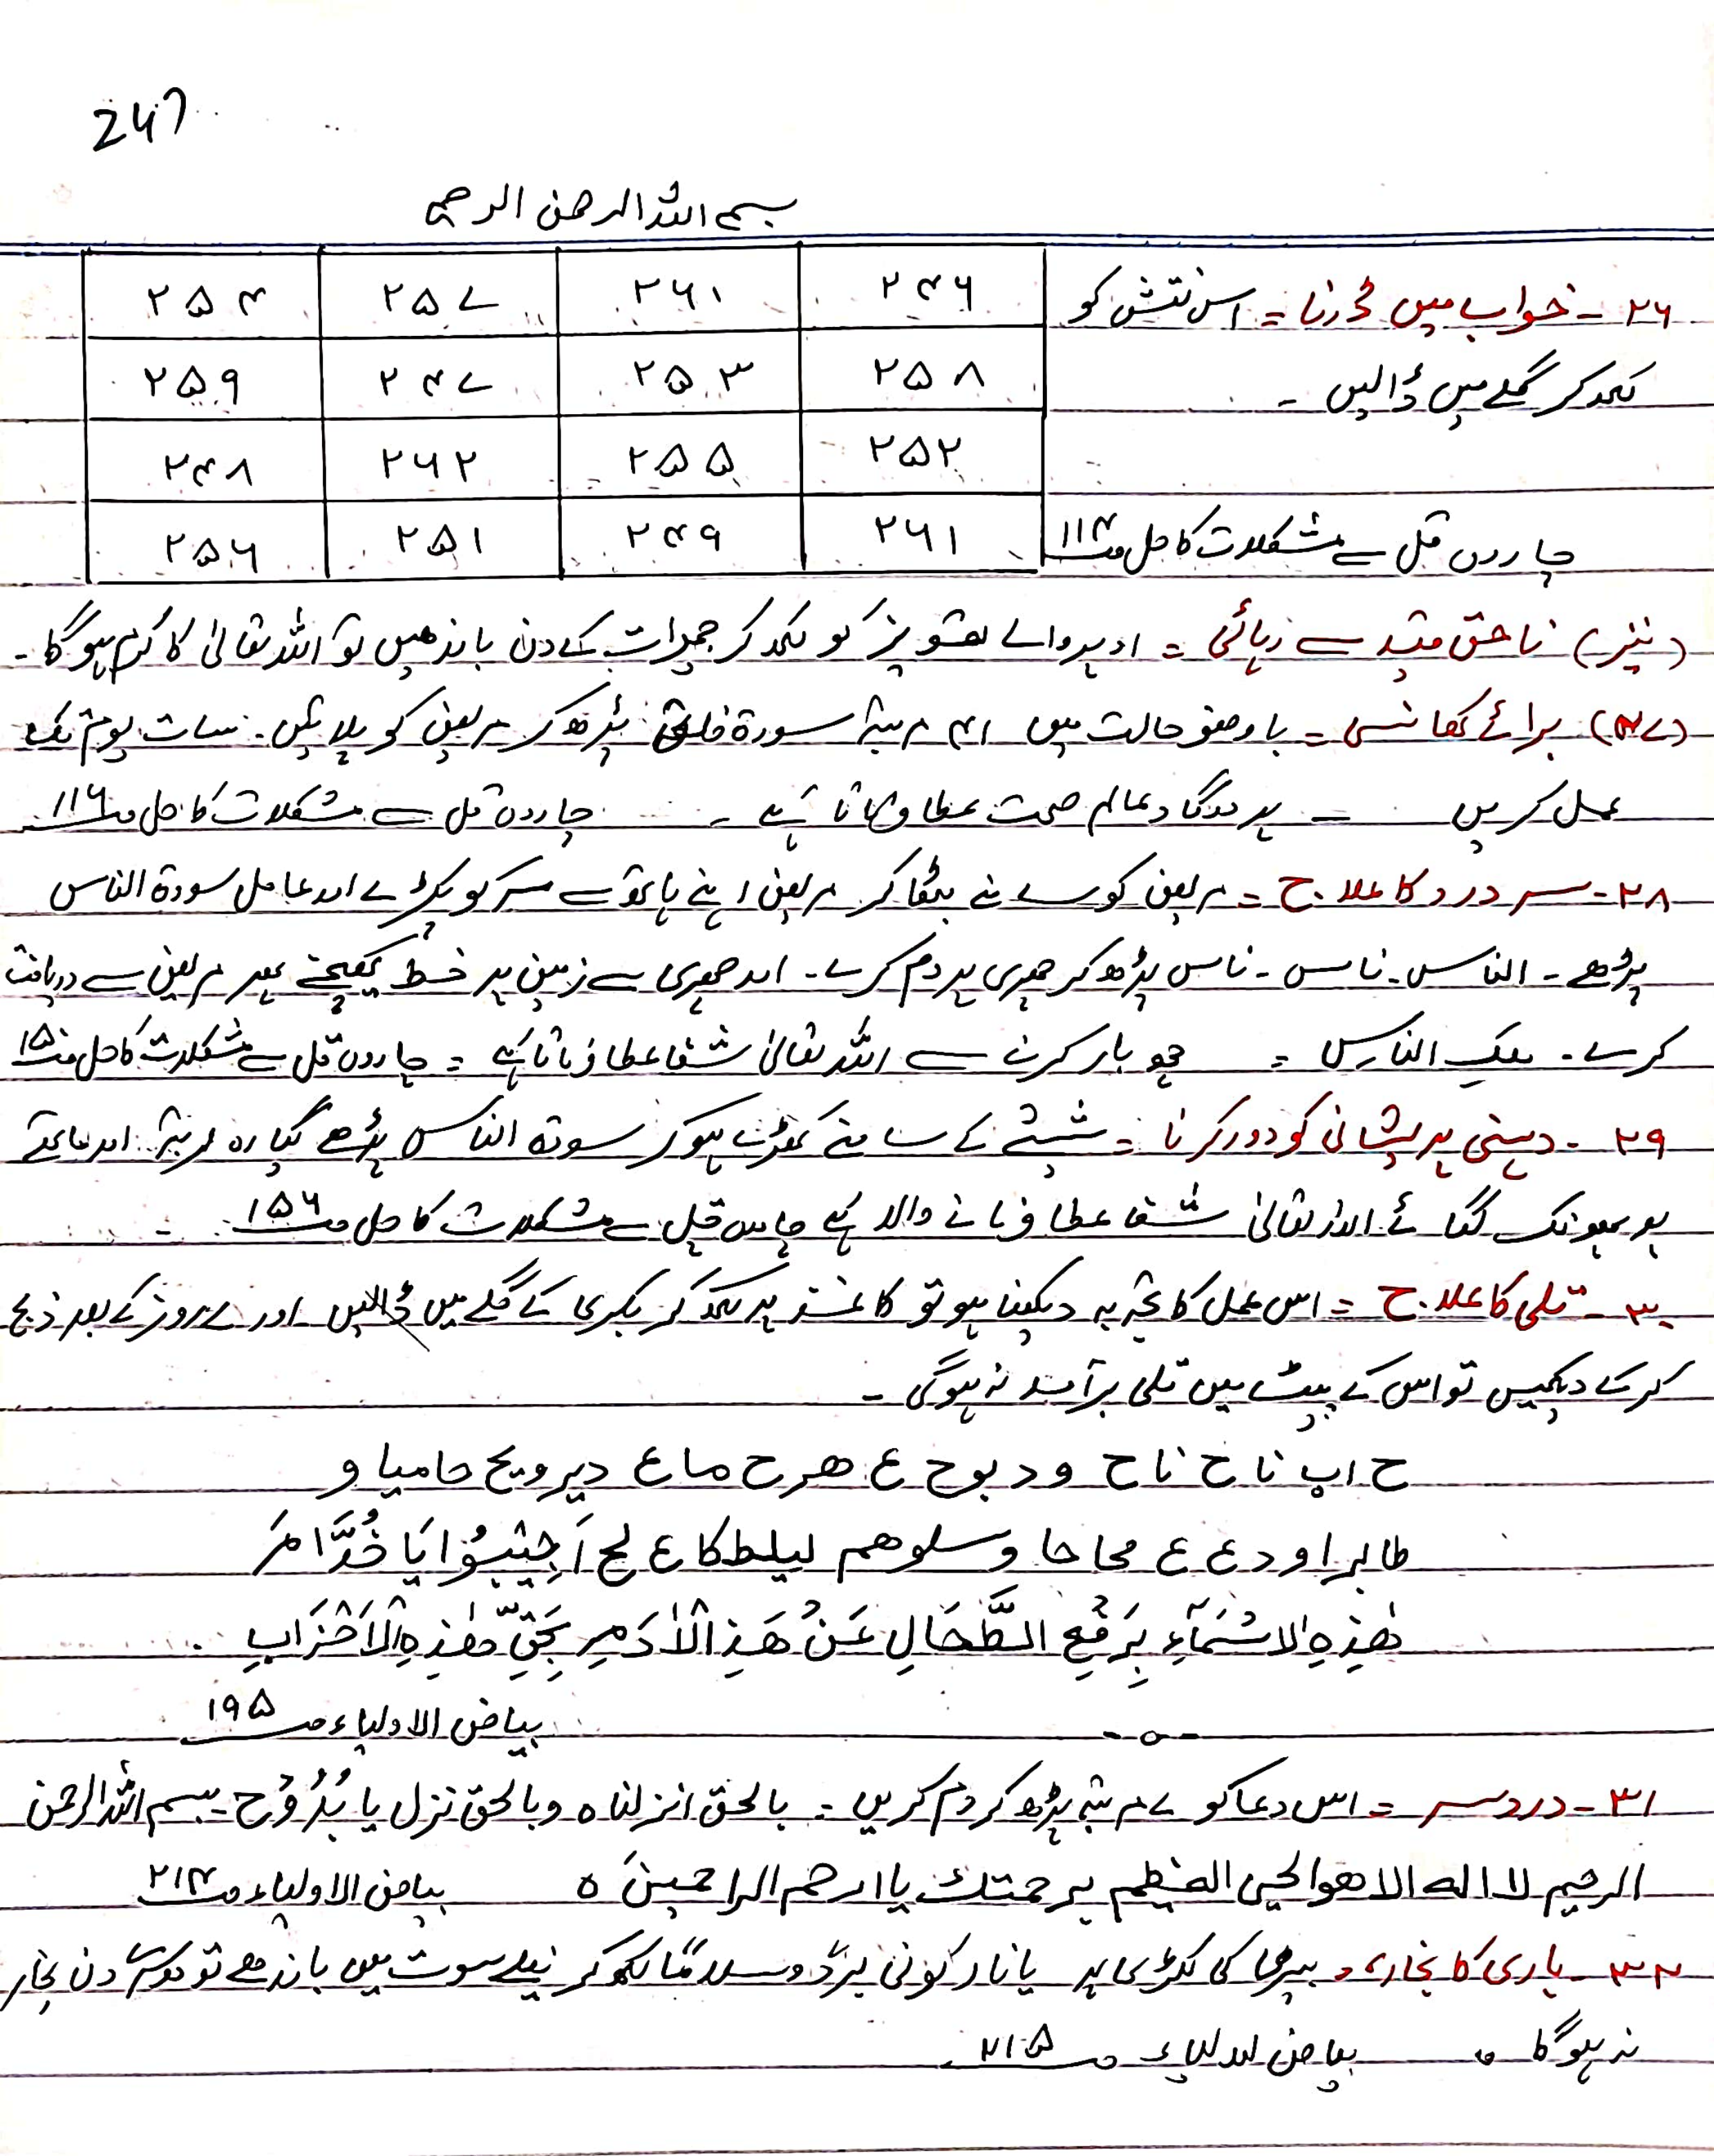 247
بسم اللہ الرحمن الرحیم
۲۶ - خواب میں ڈرنا = اس نقش کو
لکھ کر گلے میں ڈالیں -
۲۴۶ ۲۶۱ ۲۵۷ ۲۵۴
۲۵۸ ۲۵۳ ۲۴۷ ۲۵۹
۲۵۲ ۲۵۵ ۲۶۲ ۲۴۸
۲۶۱ ۲۴۹ ۲۵۱ ۲۵۶
چاروں قل سے مشکلات کا حل صـ ۱۱۴
(نیز) ناحق قید سے رہائی = اوپر والے تعویز کو لکھ کر جمعرات کے دن باندھیں تو اللہ تعالیٰ کا کرم ہوگا -
(۲۷) برائے کھانسی = باوضو حالت میں ۴۱ مرتبہ سورۃ فلق پڑھ کر مریض کو پلائیں - سات یوم تک
عمل کریں — پروردگار عالم صحت عطا فرماتا ہے - چاروں قل سے مشکلات کا حل صـ ۱۱۶
۲۸ - سر درد کا علاج = مریض کو سامنے بٹھا کر مریض اپنے ہاتھ سے سر کو پکڑے اور عامل سورۃ الناس
پڑھے - الناس - ناس - ناس پڑھ کر چھری پر دم کرے - اور چھری سے زمین پر خط کھینچے پھر مریض سے دریافت
کرے - ملک الناس = چھ بار کرنے سے اللہ تعالیٰ شفا عطا فرماتا ہے = چاروں قل سے مشکلات کا حل صـ ۱۵
۲۹ - ذہنی پریشانی کو دور کرنا = شیشے کے سامنے کھڑے ہو کر سورۃ الناس پڑھے گیارہ مرتبہ اور ماتھے
پر پھونک لگائے اللہ تعالیٰ شفا عطا فرمانے والا ہے چاروں قل سے مشکلات کا حل صـ ۱۵۶ -
۳۰ - تلی کا علاج = اس عمل کا تجربہ دیکھنا ہو تو کاغذ پر لکھ کر بکری کے گلے میں ڈالیں اور ۷ روز کے بعد ذبح
کر کے دیکھیں تو اس کے پیٹ میں تلی برآمد نہ ہوگی -
ح اب نا ح نا ح و د بوح ع ھر ح ما ع دیرویح حامیا و
طابر او د ع ع محاحا وسلوھم لیلطکا ع لح اَجِیْبُوْا یَا خُدَّامَ
ھٰذِہِ الْاَسْمَآءِ بِرَفْعِ الطَّحَالِ عَنْ ھَذِ الْاٰدَمِی بِحَقِّ ھٰذِہِ الْاَحْزَابِ
بیاض الاولیاء صـ ۱۹۵
-o-
۳۱ - درد سر = اس دعا کو ۷ مرتبہ پڑھ کر دم کریں - بالحق انزلناہ وبالحق نزل یا بُدُوْح - بسم اللہ الرحمن
الرحیم لا الہ الا ھو الحی العظیم برحمتک یا ارحم الراحمین ہ بیاض الاولیاء صـ ۲۱۴
۳۲ - باری کا بخار = بیری کی لکڑی پر یا نار کونی برداً وسلاماً لکھ کر نیلے سوت میں باندھے تو دوسرے دن بخار
نہ ہوگا ۰ بیاض الاولیاء صـ ۲۱۵